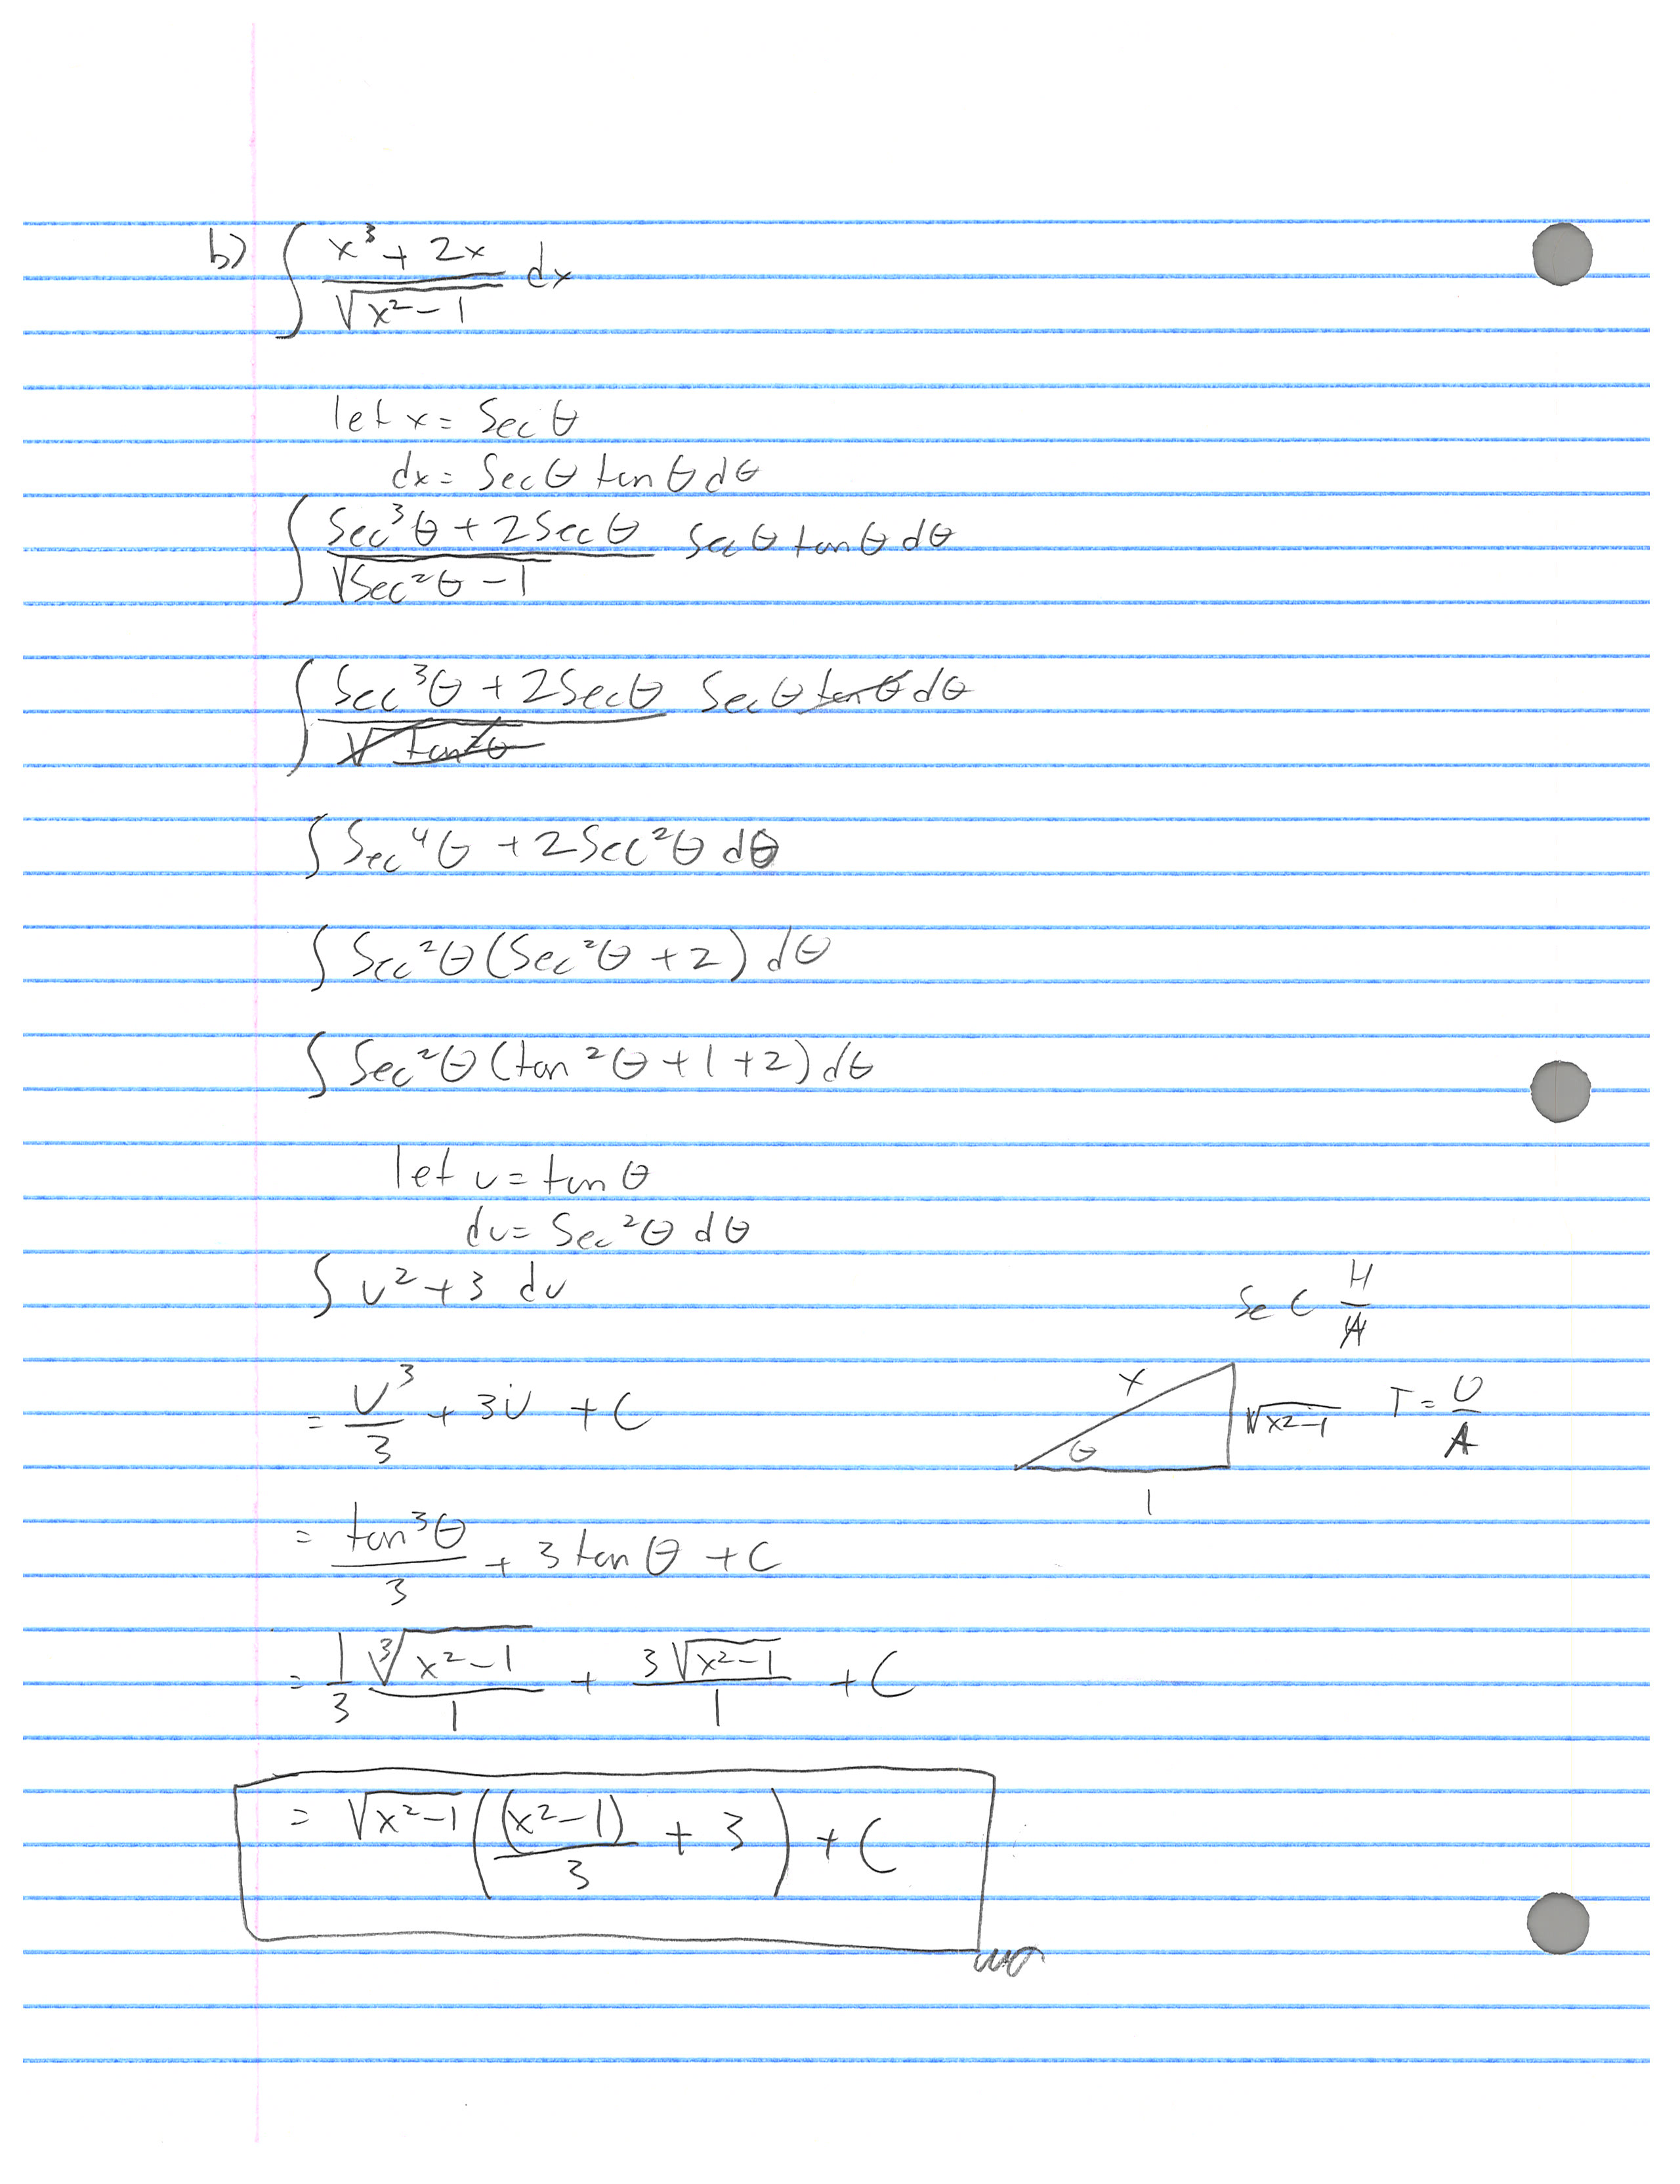 b) ∫ (x³ + 2x)/√(x² - 1) dx
let x = Sec θ
dx = Sec θ tan θ dθ
∫ (Sec³θ + 2Secθ)/√(Sec²θ - 1) Sec θ tan θ dθ
∫ (Sec³θ + 2Secθ)/√(tan²θ) Sec θ tan θ dθ
∫ Sec⁴θ + 2Sec²θ dθ
∫ Sec²θ (Sec²θ + 2) dθ
∫ Sec²θ (tan²θ + 1 + 2) dθ
let u = tan θ
du = Sec²θ dθ
∫ u² + 3 du
Sec H/A
= u³/3 + 3u + C
x
θ
√(x²-1)
1
T = O/A
= tan³θ/3 + 3 tan θ + C
= 1/3 ∛(x² - 1)/1 + 3√(x² - 1)/1 + C
= √(x² - 1) ((x² - 1)/3 + 3) + C